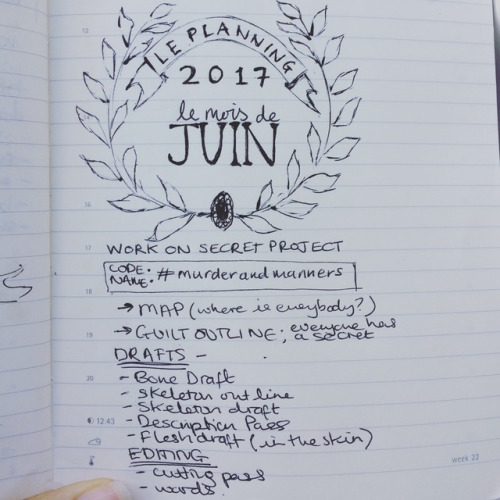 LE PLANNING
2017
le mois de
JUIN
WORK ON SECRET PROJECT
CODE NAME: #murderandmanners
→ MAP (where is everybody?)
→ GUILT OUTLINE; everyone has a secret
DRAFTS -
- Bone Draft
- skeleton outline
- Skeleton draft
- Description Pass
- Flesh draft (is the skin)
EDITING
- cutting pass
- words
13
16
17
18
19
20
12:43
week 22